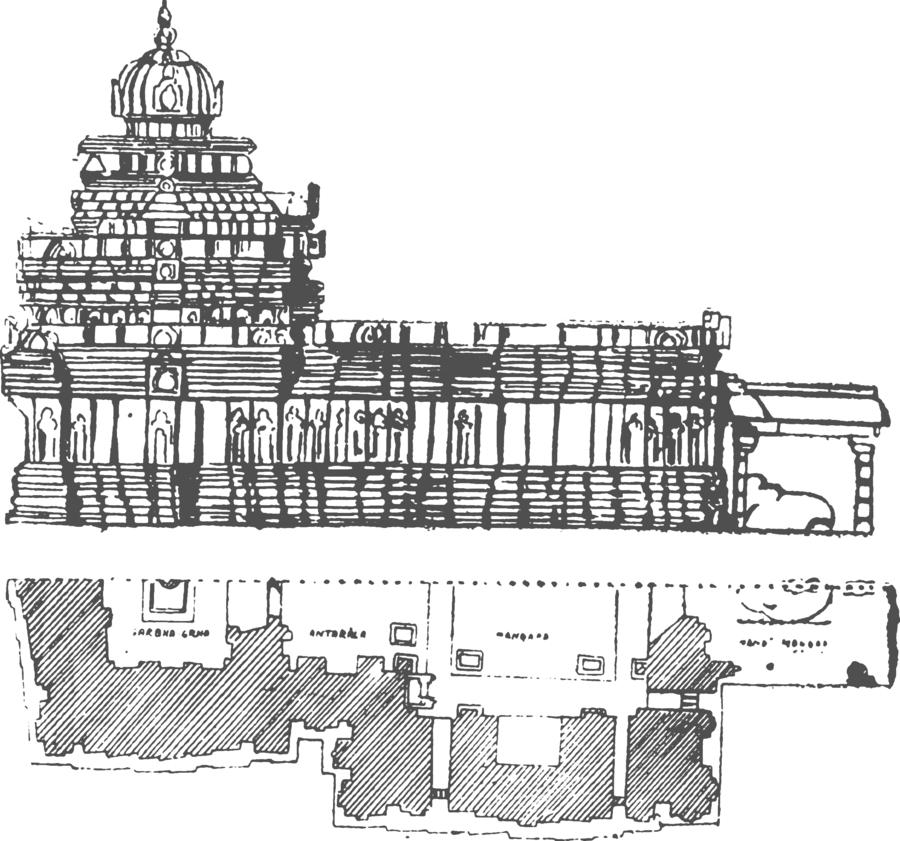 GARBHA GRHA
ANTARALA
MANDAPA
NANDI MANDAPA